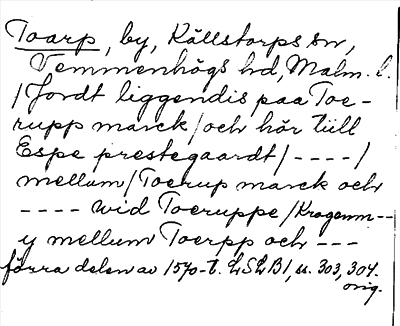 Toarp, by, Källstorps sn,
Vemmenhögs hd, Malm. l.
/Jordt liggendis paa Toe-
rupp marck/och hör till
Espe prestegaardt/----/
mellum/Toerup marck och
---- wid Toeruppe/Kragemm--
y mellum Toerpp och ---
förra delen av 1570-t. LSLB1, ss. 303, 304.
orig.